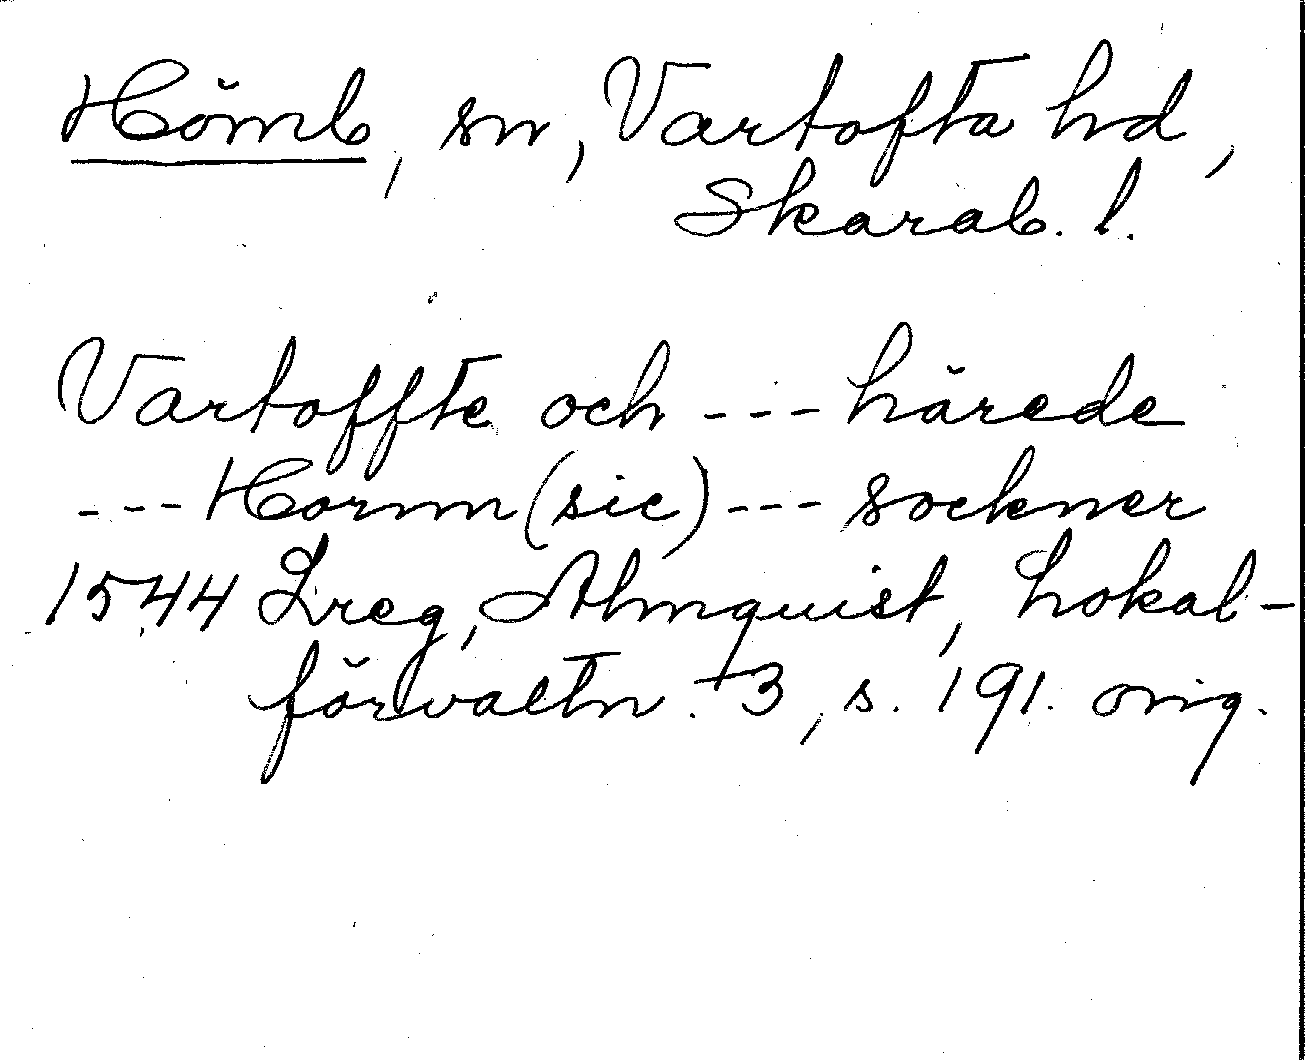 Hömb, sn, Vartofta hd,
Skarab. l.
Vartoffte och --- härede
--- Hornm (sic) --- sockner
1544 Lreg, Almquist, Lokal-
förvaltn. 3, s. 191. orig.